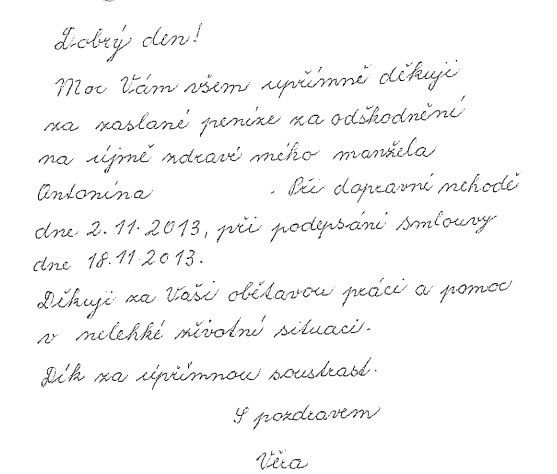 Dobrý den!
Moc Vám všem upřímně děkuji
za zaslané peníze za odškodnění
na újmě zdraví mého manžela
Antonína . Při dopravní nehodě
dne 2.11.2013, při podepsání smlouvy
dne 18.11.2013.
Děkuji za Vaši obětavou práci a pomoc
v nelehké životní situaci.
Dík za úpřímnou soustrast.
S pozdravem
Věra